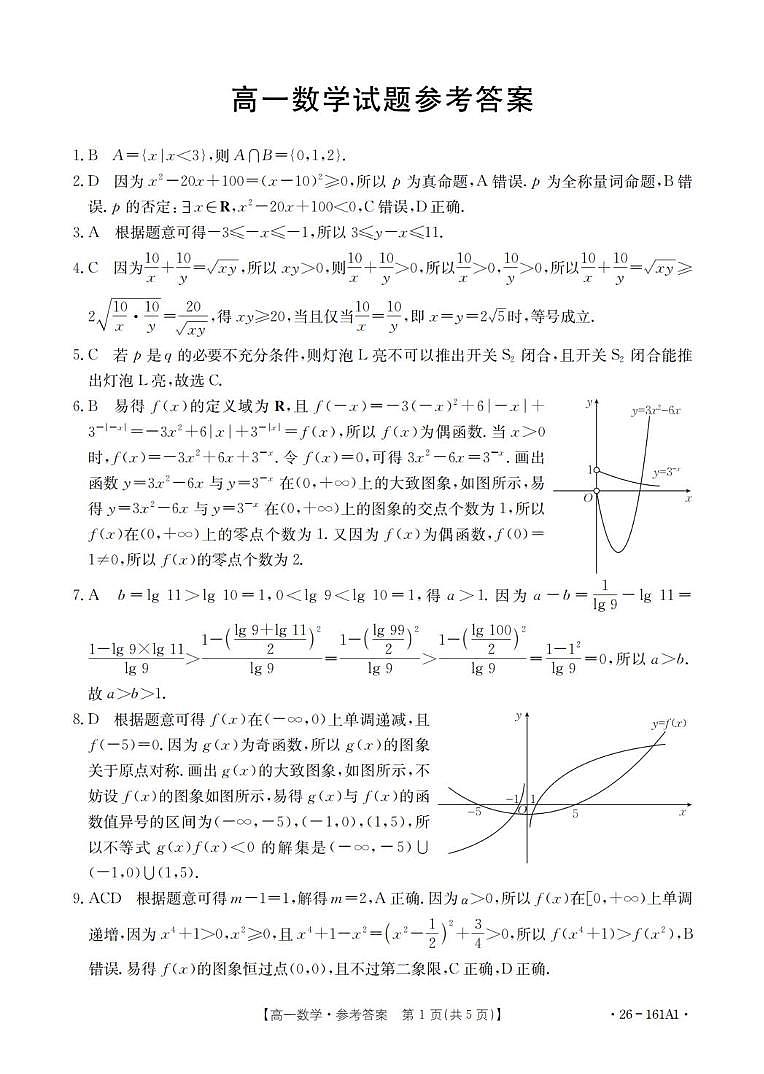 高一数学试题参考答案
1. B　A={x|x<3},则 A∩B={0,1,2}.
2. D　因为 x²-20x+100=(x-10)²≥0,所以 p 为真命题,A 错误. p 为全称量词命题,B 错
误. p 的否定:∃x∈R,x²-20x+100<0,C 错误,D 正确.
3. A　根据题意可得-3≤-x≤-1,所以 3≤y-x≤11.
4. C　因为10/x+10/y=√(xy),所以 xy>0,则10/x+10/y>0,所以10/x>0,10/y>0,所以10/x+10/y=√(xy)≥
2√(10/x·10/y)=20/√(xy),得 xy≥20,当且仅当10/x=10/y,即 x=y=2√5时,等号成立.
5. C　若 p 是 q 的必要不充分条件,则灯泡 L 亮不可以推出开关 S₂ 闭合,且开关 S₂ 闭合能推
出灯泡 L 亮,故选 C.
6. B　易得 f(x)的定义域为 R,且 f(-x)=-3(-x)²+6|-x|+
3^(-|-x|)=-3x²+6|x|+3^(-|x|)=f(x),所以 f(x)为偶函数. 当 x>0
时,f(x)=-3x²+6x+3^(-x). 令 f(x)=0,可得 3x²-6x=3^(-x). 画出
函数 y=3x²-6x 与 y=3^(-x) 在(0,+∞)上的大致图象,如图所示,易
得 y=3x²-6x 与 y=3^(-x) 在(0,+∞)上的图象的交点个数为 1,所以
f(x)在(0,+∞)上的零点个数为 1. 又因为 f(x)为偶函数,f(0)=
1≠0,所以 f(x)的零点个数为 2.
y
y=3x²-6x
1
y=3^(-x)
O
x
7. A　b=lg 11>lg 10=1,0<lg 9<lg 10=1,得 a>1. 因为 a-b=1/lg 9-lg 11=
(1-lg 9×lg 11)/lg 9>(1-((lg 9+lg 11)/2)²)/lg 9=(1-(lg 99/2)²)/lg 9>(1-(lg 100/2)²)/lg 9=(1-1²)/lg 9=0,所以 a>b.
故 a>b>1.
8. D　根据题意可得 f(x)在(-∞,0)上单调递减,且
f(-5)=0. 因为 g(x)为奇函数,所以 g(x)的图象
关于原点对称. 画出 g(x)的大致图象,如图所示,不
妨设 f(x)的图象如图所示,易得 g(x)与 f(x)的函
数值异号的区间为(-∞,-5),(-1,0),(1,5),所
以不等式 g(x)f(x)<0 的解集是(-∞,-5)∪
(-1,0)∪(1,5).
y
y=f(x)
-5
-1
O
1
5
x
9. ACD　根据题意可得 m-1=1,解得 m=2,A 正确. 因为 α>0,所以 f(x)在[0,+∞)上单调
递增,因为 x⁴+1>0,x²≥0,且 x⁴+1-x²=(x²-1/2)²+3/4>0,所以 f(x⁴+1)>f(x²),B
错误. 易得 f(x)的图象恒过点(0,0),且不过第二象限,C 正确,D 正确.
【高一数学·参考答案　第 1 页(共 5 页)】
·26-161A1·